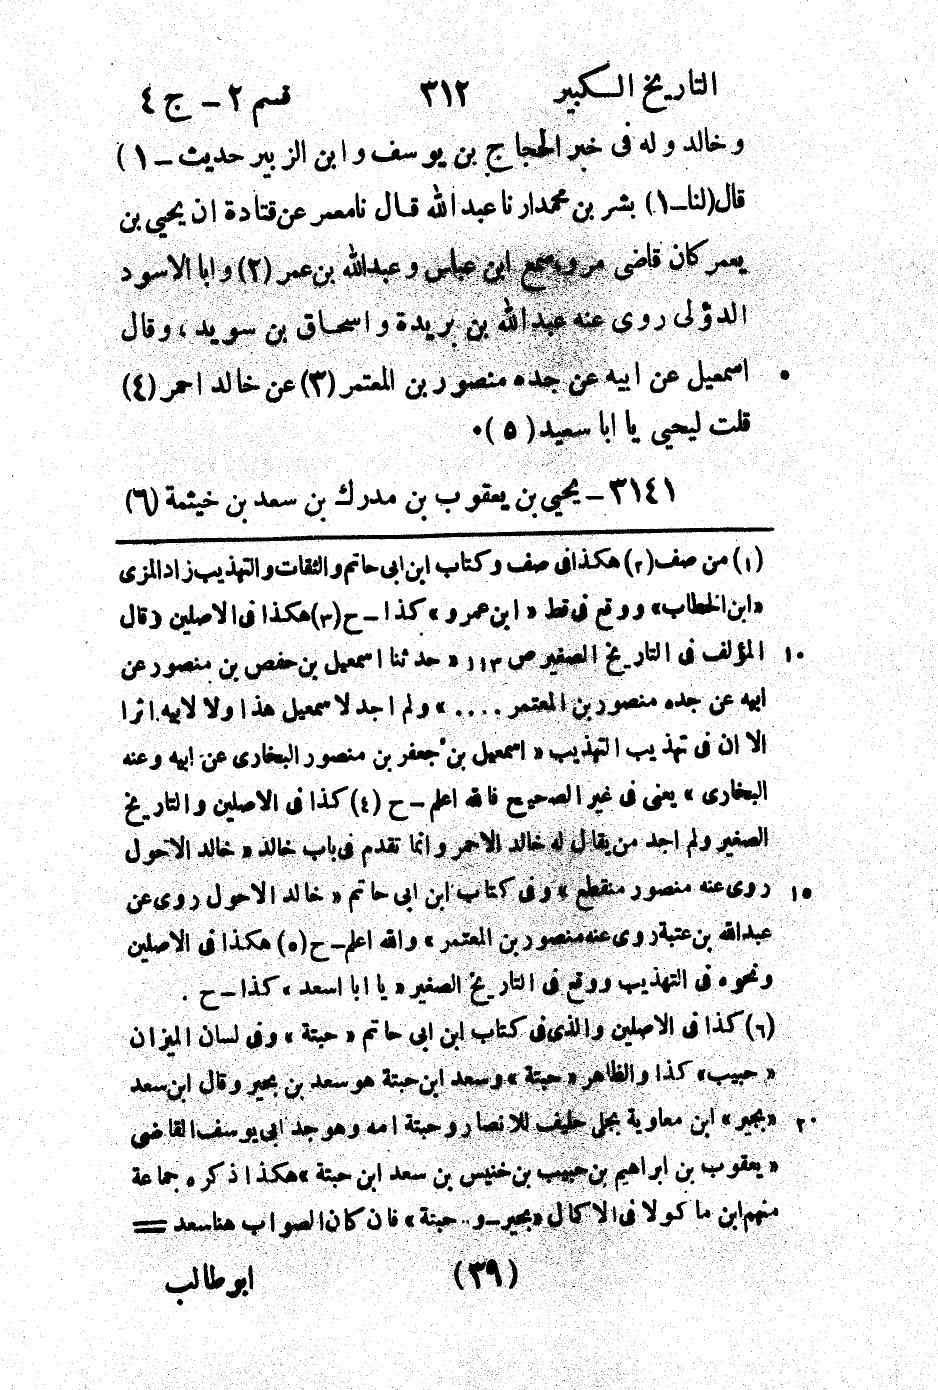 التاريخ الكبير ٣١٢ قسم ٢ – ج ٤
وخالد وله فى خبر الحجاج بن يوسف وابن الزبير حديث – ١ )
قال (لنا – ١ ) بشر بن محمد ارنا عبد الله قال نا معمر عن قتادة ان يحيى بن
يعمر كان قاضى مرو، سمع ابن عباس وعبد الله بن عمر (٢) وابا الاسود
الدؤلى روى عنه عبد الله بن بريدة واسحاق بن سويد، وقال
اسمعيل عن ابيه عن جده منصور بن المعتمر (٣) عن خالد احمر (٤) ٥
قلت ليحيى يا ابا سعيد ( ٥ )٠
٣١٤١ – يحيى بن يعقوب بن مدرك بن سعد بن خيثمة (٦)
(١) من صف (٢) هكذا فى صف وكتاب ابن ابى حاتم والثقات والتهذيب زاد المزى
«ابن الخطاب» ووقع فى قط « ابن عمرو » كذا – ح (٣) هكذا فى الاصلين وقال
المؤلف فى التاريخ الصغير ص ١١٣ « حدثنا اسمعيل بن حفص بن منصور عن ١٠
ابيه عن جده منصور بن المعتمر .... » ولم اجد لاسمعيل هذا ولا لابيه اثرا
الا ان فى تهذيب التهذيب « اسمعيل بن جعفر بن منصور البخارى عن ابيه وعنه
البخارى » يعنى فى غير الصحيح فالله اعلم – ح (٤) كذا فى الاصلين والتاريخ
الصغير ولم اجد من يقال له خالد الاحمر وانما تقدم فى باب خالد « خالد الاحول
روى عنه منصور منقطع » وفى كتاب ابن ابى حاتم « خالد الاحول روى عن ١٥
عبد الله بن عتبة روى عنه منصور بن المعتمر » والله اعلم – ح (٥) هكذا فى الاصلين
ونحوه فى التهذيب ووقع فى التاريخ الصغير « يا ابا اسعد » كذا – ح .
(٦) كذا فى الاصلين والذى فى كتاب ابن ابى حاتم « حبتة » وفى لسان الميزان
« حبيب » كذا والظاهر « حبتة » وسعد ابن حبتة هو سعد بن بحير وقال ابن سعد
«بجير» ابن معاوية بجلى حليف للانصار وحبتة امه وهو جد ابى يوسف القاضى ٢٠
« يعقوب بن ابراهيم بن حبيب بن خنيس بن سعد ابن حبتة » هكذا ذكره جماعة
منهم ابن ماكولا فى الاكمال «بحير – و – حبتة » فان كان الصواب هنا سعد =
(٣٩) ابو طالب